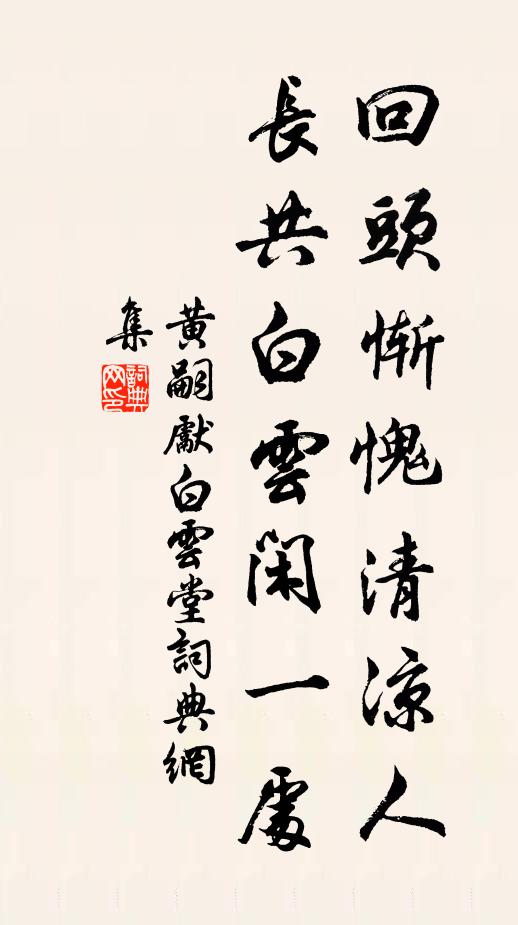 回頭慚愧清涼人
長共白雲閑一處
黃嗣獻白雲堂詞典網
集
詞典網印